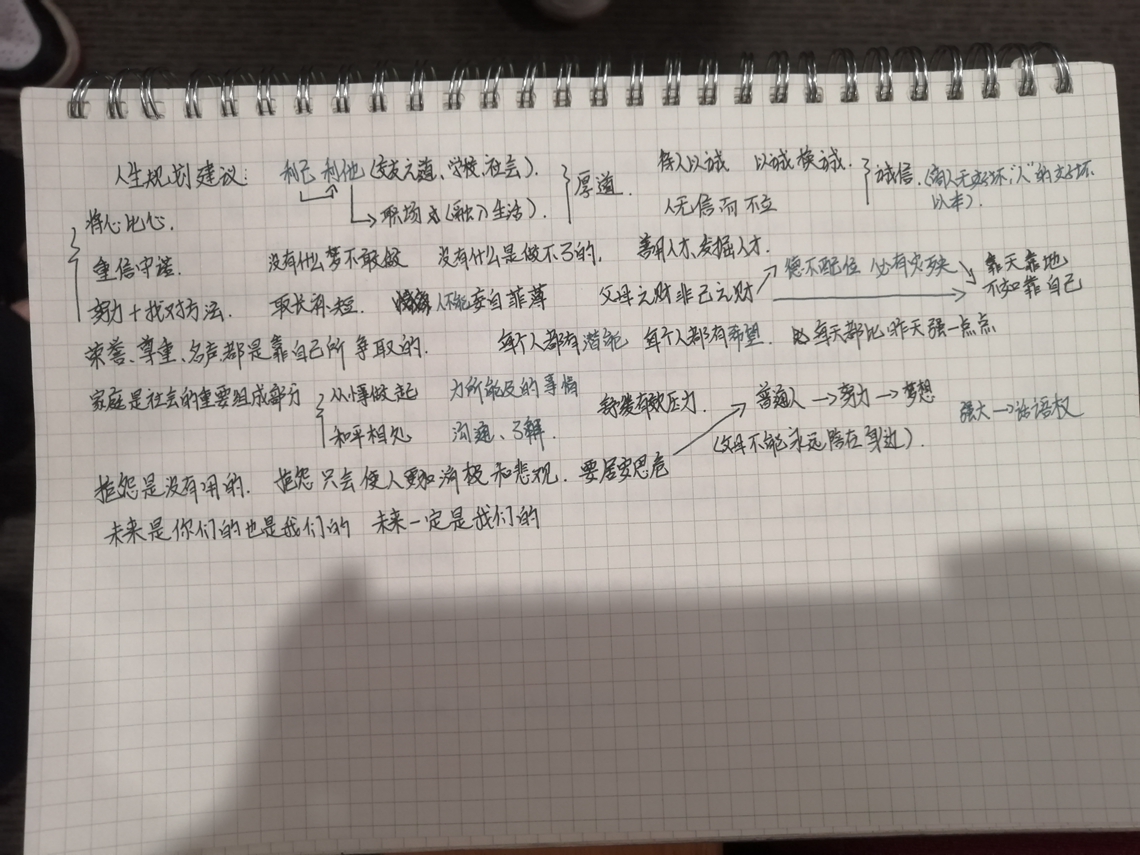 人生规划建议: 利己 利他 (交友之道、学校、社会). 厚道. 待人以诚 以诚换诚. 诚信. (人无好坏 "人"的好坏
将心比心. 职场 (融入生活). 人无信而不立 以本).
重信守诺. 没有什么梦不敢做 没有什么是做不了的, 善用人才、发掘人才. 德不配位 必有灾殃 靠天靠地
努力+找对方法. 取长补短. 人不能妄自菲薄 父母之财非己之财 不如靠自己
荣誉、尊重、名声都是靠自己所争取的. 每个人都有潜能 每个人都有希望. 每天都比昨天强一点点
家庭是社会的重要组成部分 从小事做起 力所能及的事情 有效压力. 普通人→努力→梦想 强大→话语权
和平相处 沟通、了解. (父母不能永远陪在身边).
抱怨是没有用的. 抱怨只会使人更加消极和悲观. 要居安思危
未来是你们的也是我们的 未来一定是我们的